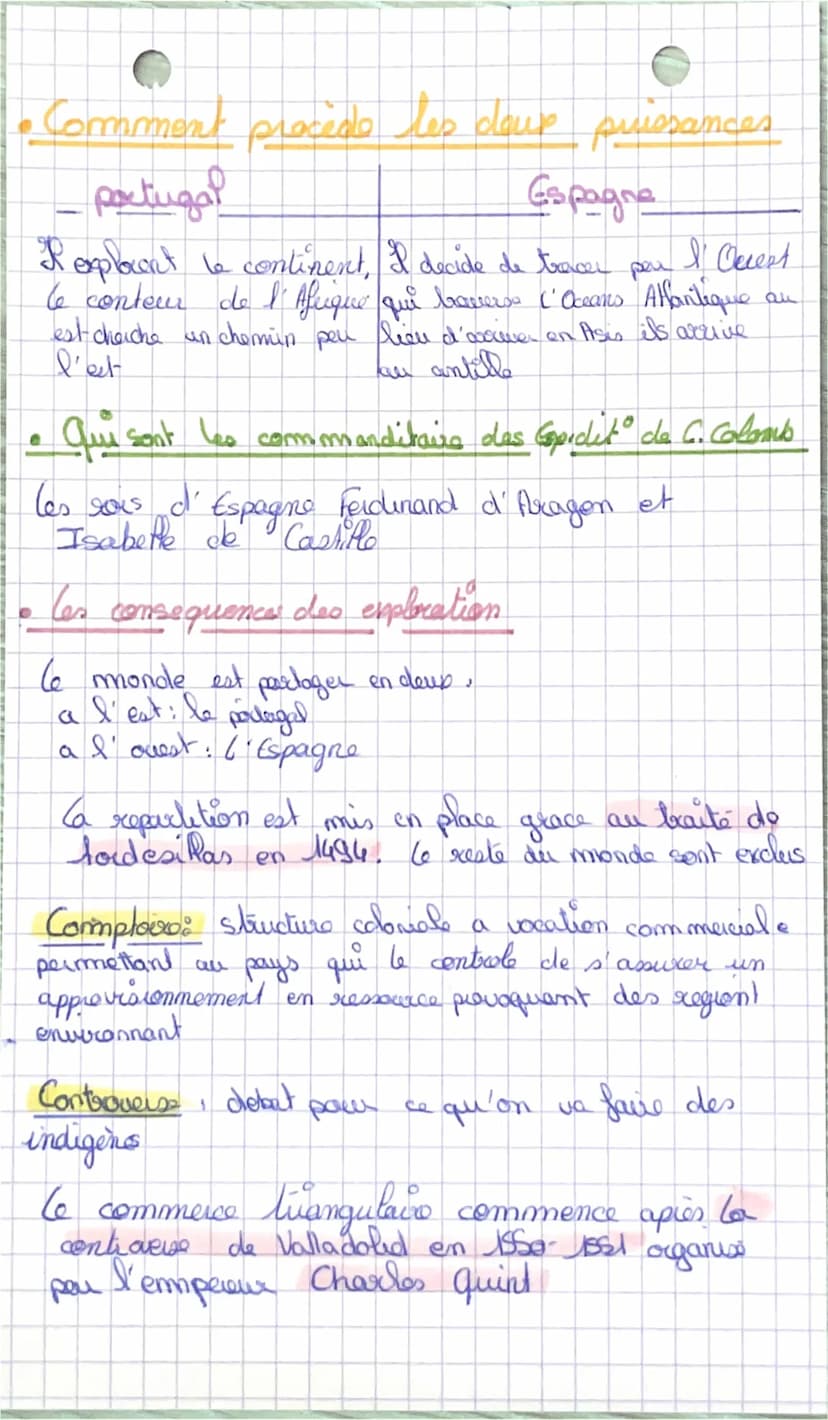 • Commment procède les deux puissances
_ portugal
Espagne
Il explorent le continent,
le conteur de l'Afrique
est cherche un chemin par
l'est
Il decide de tracer par l'Ouest
qui traverse l'Oceans Atlantique au
lieu d'arriver en Asis ils arrive
au antille
• Qui sont les commmanditaire des Expidit° de C. Colomb
Les rois d'Espagne Ferdinand d'Aragon et
Isabelle de Castille
• Les consequences des exploration
Le monde est partager en deux,
a l'est : le portugal
a l'ouest : l'Espagne
La repartition est mis en place grace au traité de
tordesillas en 1494. Le reste du monde sont exclus
Comptoire : structure coloniale a vocation commerciale
permettant au pays qui le controle de s'assurer un
approvisionnement en ressource provoquant des regiont
environnant
Controverse, debat pour ce qu'on va faire des
indigènes
Le commerce triangulaire commence après la
controverse de Valladolid en 1550-1551 organisé
par l'empereur Charles Quint